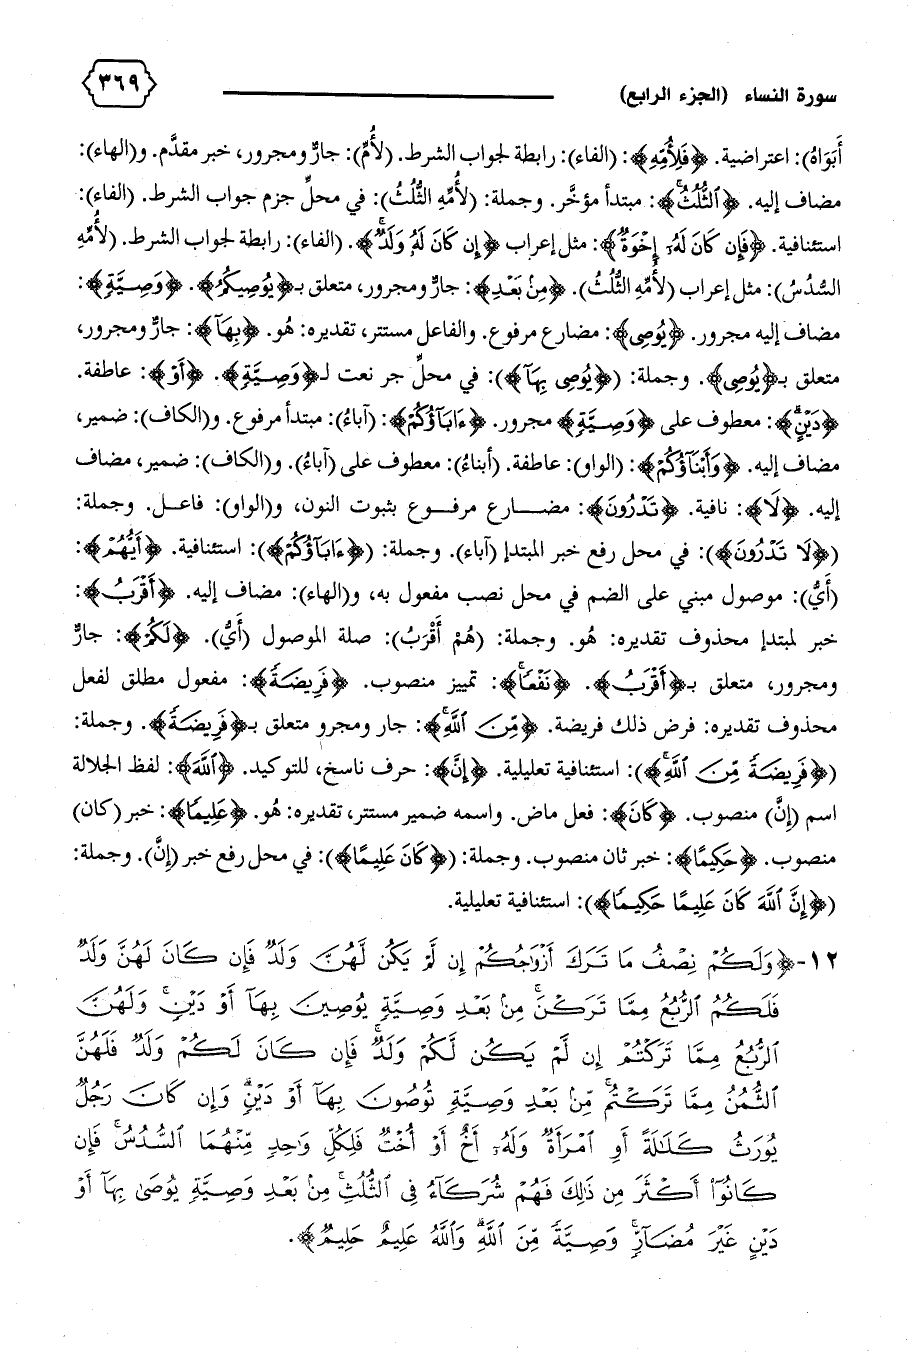 سورة النساء (الجزء الرابع) ٣٦٩
أَبَوَاهُ): اعتراضية. ﴿فَلِأُمِّهِ﴾: (الفاء): رابطة لجواب الشرط. (لأُمِّ): جارٌّ ومجرور، خبر مقدَّم. و(الهاء):
مضاف إليه. ﴿ٱلثُّلُثُ﴾: مبتدأ مؤخَّر. وجملة: (لأُمِّهِ الثُّلُثُ): في محلِّ جزم جواب الشرط. (الفاء):
استئنافية. ﴿فَإِن كَانَ لَهُۥٓ إِخْوَةٌ﴾: مثل إعراب ﴿إِن كَانَ لَهُۥ وَلَدٌ﴾. (الفاء): رابطة لجواب الشرط. (لأُمِّهِ
السُّدُسُ): مثل إعراب (لأُمِّهِ الثُّلُثُ). ﴿مِنۢ بَعْدِ﴾: جارٌّ ومجرور، متعلق بـ﴿يُوصِيكُمُ﴾. ﴿وَصِيَّةٍ﴾:
مضاف إليه مجرور. ﴿يُوصِى﴾: مضارع مرفوع. والفاعل مستتر، تقديره: هُو. ﴿بِهَآ﴾: جارٌّ ومجرور،
متعلق بـ﴿يُوصِى﴾. وجملة: (﴿يُوصِى بِهَآ﴾): في محلِّ جر نعت لـ﴿وَصِيَّةٍ﴾. ﴿أَوْ﴾: عاطفة.
﴿دَيْنٍ﴾: معطوف على ﴿وَصِيَّةٍ﴾ مجرور. ﴿ءَابَآؤُكُمْ﴾: (آباءُ): مبتدأ مرفوع. و(الكاف): ضمير،
مضاف إليه. ﴿وَأَبْنَآؤُكُمْ﴾: (الواو): عاطفة. (أبناءُ): معطوف على (آباءُ). و(الكاف): ضمير، مضاف
إليه. ﴿لَا﴾: نافية. ﴿تَدْرُونَ﴾: مضارع مرفوع بثبوت النون، و(الواو): فاعل. وجملة:
(﴿لَا تَدْرُونَ﴾): في محل رفع خبر المبتدإ (آباء). وجملة: (﴿ءَابَآؤُكُمْ﴾): استئنافية. ﴿أَيُّهُمْ﴾:
(أَيُّ): موصول مبني على الضم في محل نصب مفعول به، و(الهاء): مضاف إليه. ﴿أَقْرَبُ﴾:
خبر لمبتدإ محذوف تقديره: هُو. وجملة: (هُمْ أَقْرَبُ): صلة الموصول (أَيُّ). ﴿لَكُمْ﴾: جارٌّ
ومجرور، متعلق بـ﴿أَقْرَبُ﴾. ﴿نَفْعًا﴾: تمييز منصوب. ﴿فَرِيضَةً﴾: مفعول مطلق لفعل
محذوف تقديره: فرض ذلك فريضة. ﴿مِّنَ ٱللَّهِ﴾: جار ومجرو متعلق بـ﴿فَرِيضَةً﴾. وجملة:
(﴿فَرِيضَةً مِّنَ ٱللَّهِ﴾): استئنافية تعليلية. ﴿إِنَّ﴾: حرف ناسخ، للتوكيد. ﴿ٱللَّهَ﴾: لفظ الجلالة
اسم (إِنَّ) منصوب. ﴿كَانَ﴾: فعل ماض. واسمه ضمير مستتر، تقديره: هُو. ﴿عَلِيمًا﴾: خبر (كان)
منصوب. ﴿حَكِيمًا﴾: خبر ثان منصوب. وجملة: (﴿كَانَ عَلِيمًا﴾): في محل رفع خبر (إِنَّ). وجملة:
(﴿إِنَّ ٱللَّهَ كَانَ عَلِيمًا حَكِيمًا﴾): استئنافية تعليلية.
١٢-﴿وَلَكُمْ نِصْفُ مَا تَرَكَ أَزْوَٰجُكُمْ إِن لَّمْ يَكُن لَّهُنَّ وَلَدٌ فَإِن كَانَ لَهُنَّ وَلَدٌ
فَلَكُمُ ٱلرُّبُعُ مِمَّا تَرَكْنَ مِنۢ بَعْدِ وَصِيَّةٍ يُوصِينَ بِهَآ أَوْ دَيْنٍ وَلَهُنَّ
ٱلرُّبُعُ مِمَّا تَرَكْتُمْ إِن لَّمْ يَكُن لَّكُمْ وَلَدٌ فَإِن كَانَ لَكُمْ وَلَدٌ فَلَهُنَّ
ٱلثُّمُنُ مِمَّا تَرَكْتُم مِّنۢ بَعْدِ وَصِيَّةٍ تُوصُونَ بِهَآ أَوْ دَيْنٍ وَإِن كَانَ رَجُلٌ
يُورَثُ كَلَٰلَةً أَوِ ٱمْرَأَةٌ وَلَهُۥٓ أَخٌ أَوْ أُخْتٌ فَلِكُلِّ وَٰحِدٍ مِّنْهُمَا ٱلسُّدُسُ فَإِن
كَانُوٓا۟ أَكْثَرَ مِن ذَٰلِكَ فَهُمْ شُرَكَآءُ فِى ٱلثُّلُثِ مِنۢ بَعْدِ وَصِيَّةٍ يُوصَىٰ بِهَآ أَوْ
دَيْنٍ غَيْرَ مُضَآرٍّ وَصِيَّةً مِّنَ ٱللَّهِ وَٱللَّهُ عَلِيمٌ حَلِيمٌ﴾.